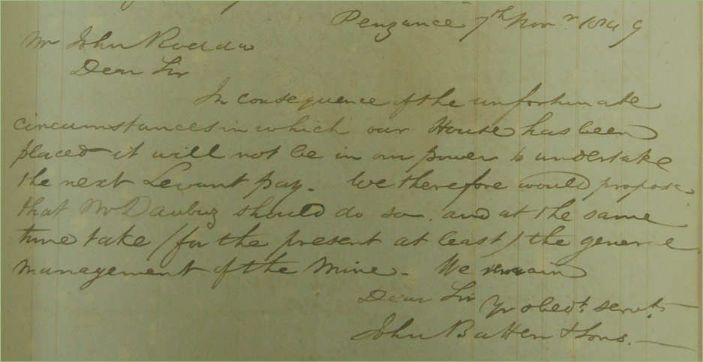 Penzance 7th Novr 1849
Mr John Rodda
Dear Sir
In consequence of the unfortunate
circumstances in which our House has been
placed it will not be in our power to undertake
the next Levant pay. We therefore would propose
that Mr Daubuz should do so. and at the same
time take (for the present at least) the general
management of the Mine - We remain
Dear Sir Yr obedt. servts.
John Batten & Sons. -